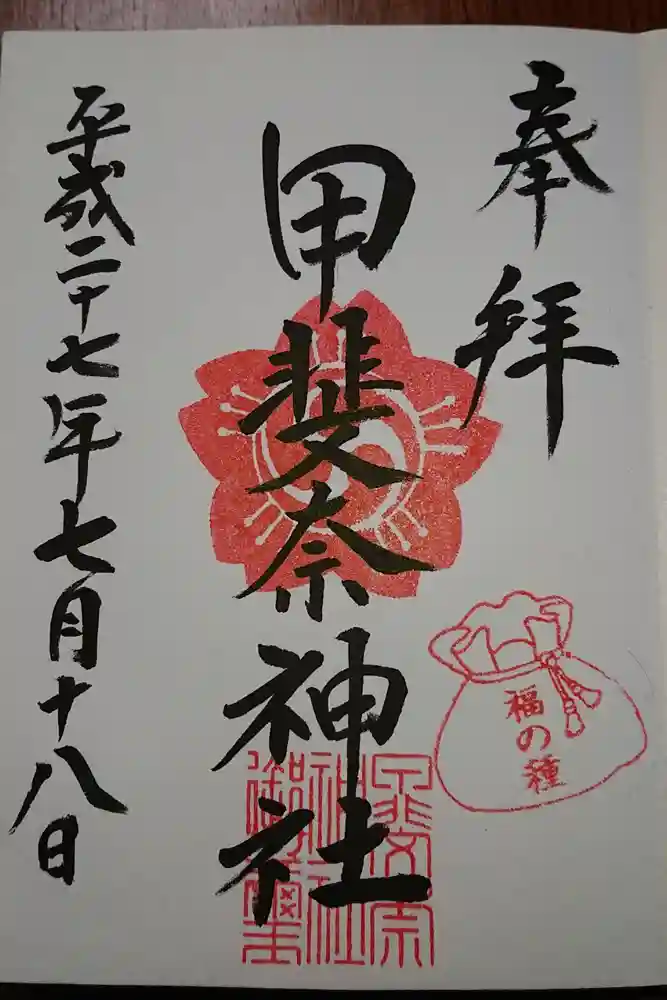 奉拝
甲斐奈神社
福の種
甲斐奈
神社
御璽
平成二十七年七月十八日